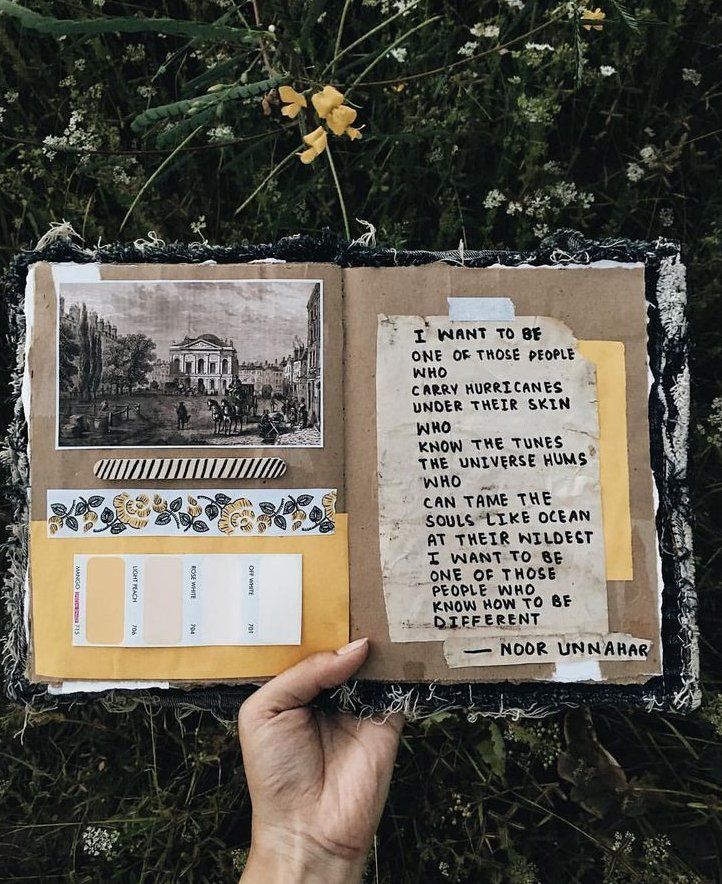 MANGO
715
LIGHT PEACH
706
ROSE WHITE
704
OFF WHITE
701
I WANT TO BE
ONE OF THOSE PEOPLE
WHO
CARRY HURRICANES
UNDER THEIR SKIN
WHO
KNOW THE TUNES
THE UNIVERSE HUMS
WHO
CAN TAME THE
SOULS LIKE OCEAN
AT THEIR WILDEST
I WANT TO BE
ONE OF THOSE
PEOPLE WHO
KNOW HOW TO BE
DIFFERENT
— NOOR UNNAHAR